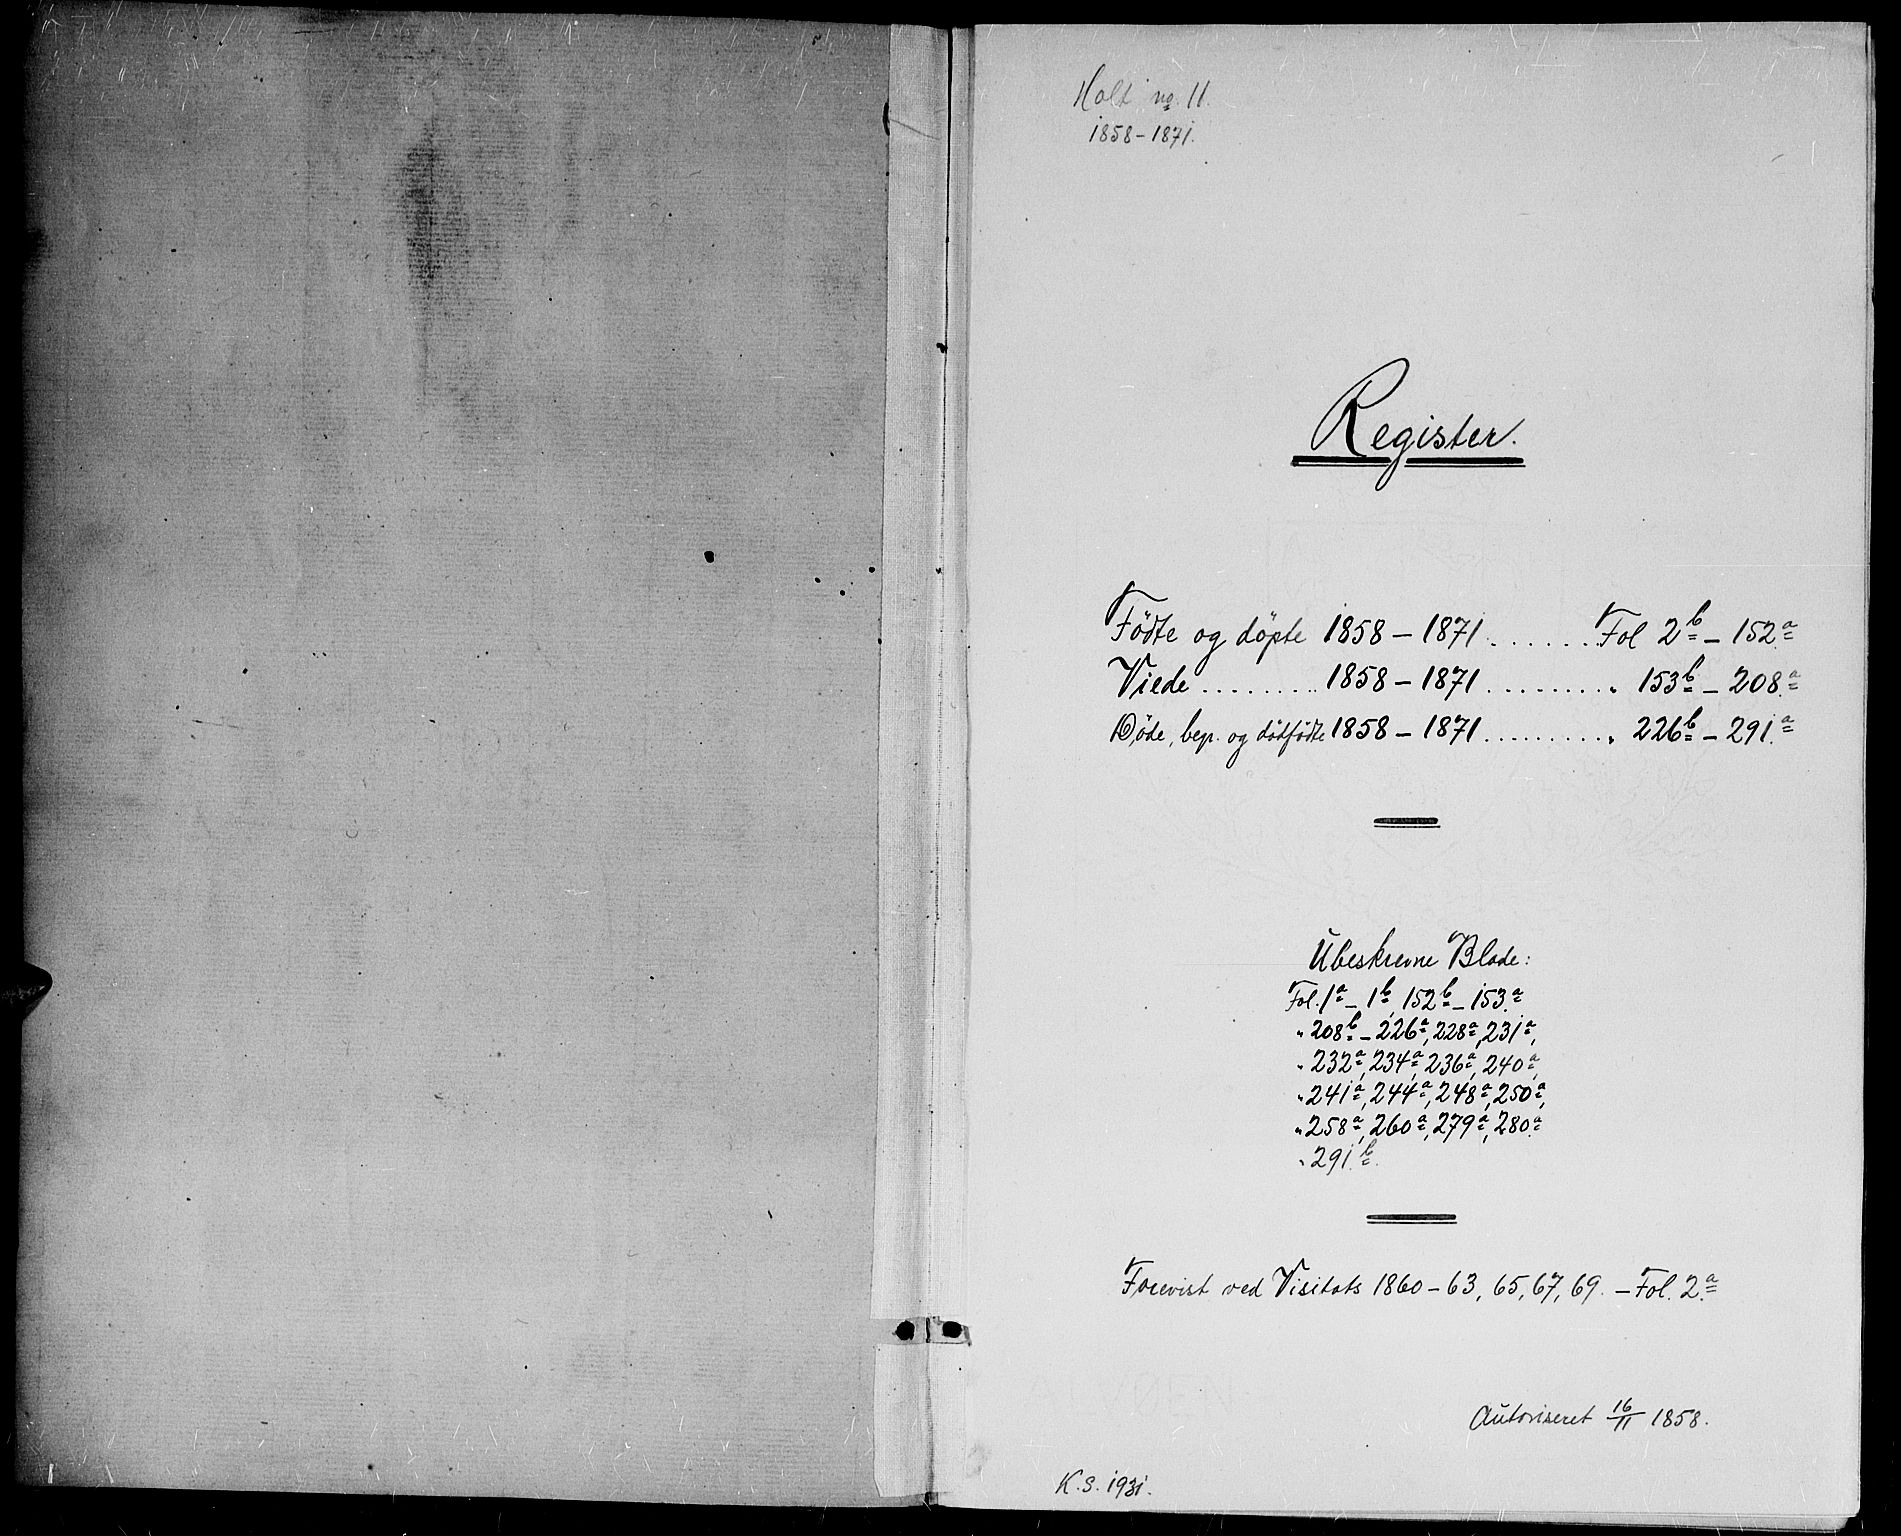 Holt no. 11.
1858-1871.
Register.
Födte og döpte 1858 - 1871 ....... Fol 2b - 152a
Viede ......... 1858 - 1871 ......... " 153b - 208a
Döde, begr. og dödfödte 1858 - 1871 ......... " 226b - 291a
Ubeskrevne Blade:
Fol. 1a - 1b, 152b - 153a
" 208b - 226a, 228a, 231a,
" 232a, 234a, 236a, 240a,
" 241a, 244a, 248a, 250a,
" 258a, 260a, 279a, 280a
" 291b.
Forevist ved Visitats 1860 - 63, 65, 67, 69. - Fol. 2a
Autoriseret 16/11 1858.
K.S. 1931.